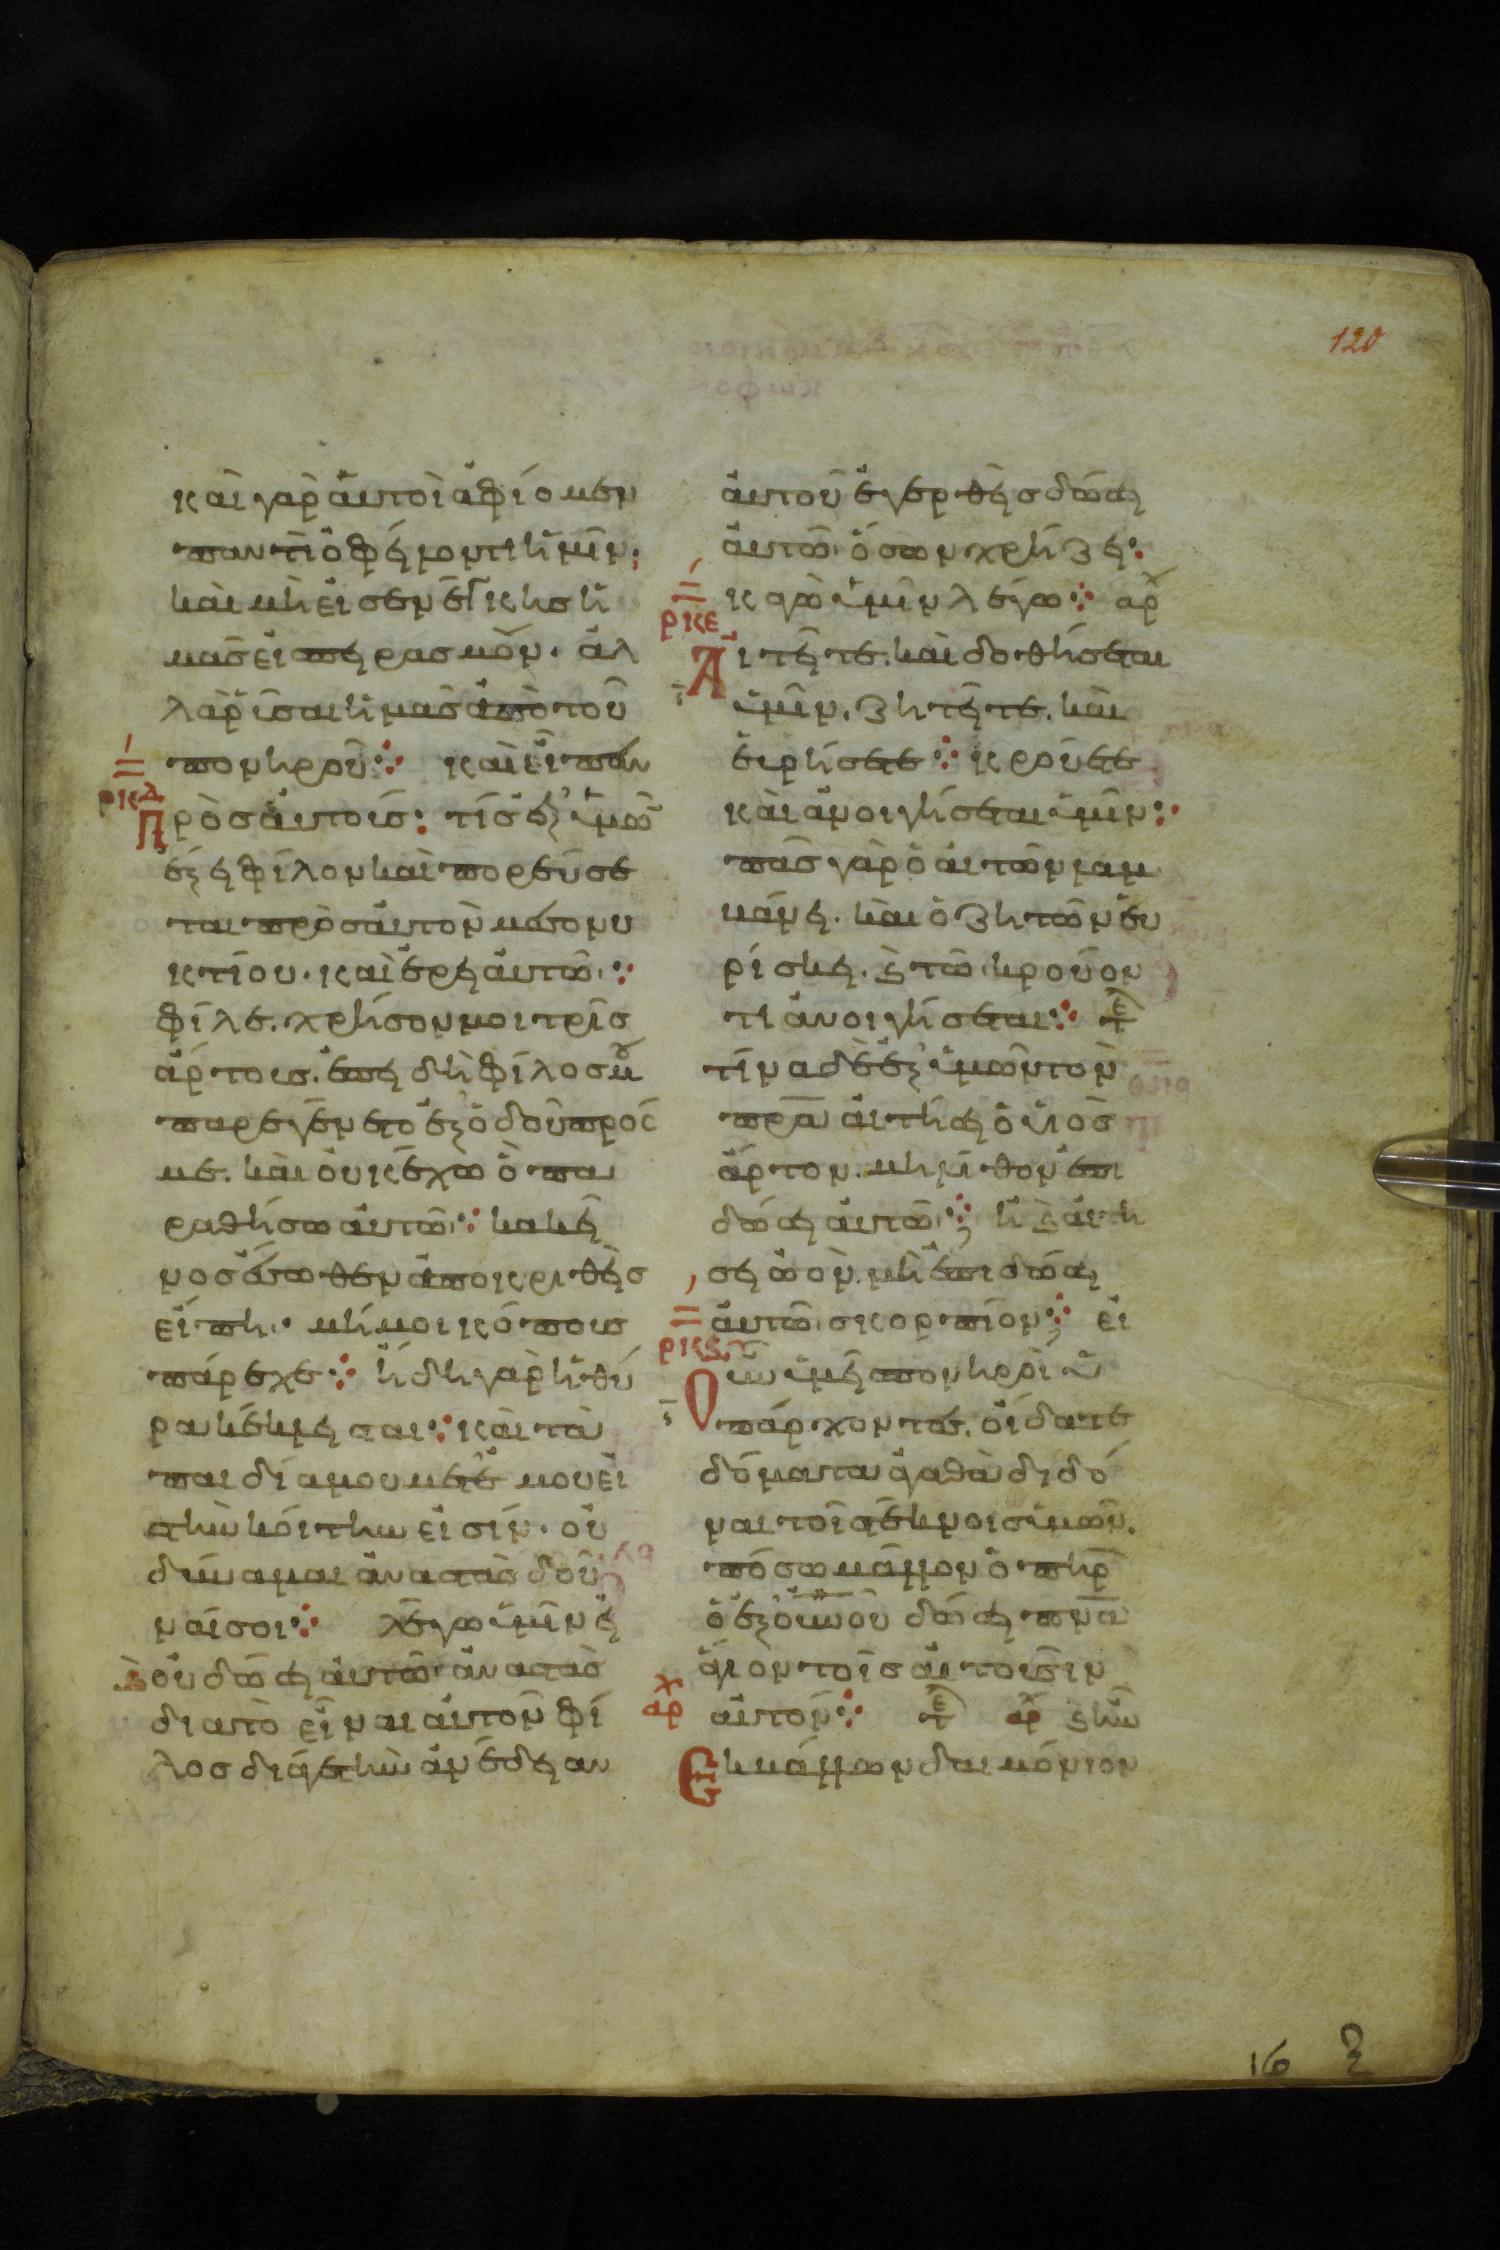 120
καὶ γὰρ ἀυτοὶ ἀφίομεν
παντὶ ὀφείλοντι ἡμῖν·
καὶ μὴ εἰσενέγκης ἡ
μᾶς εἰς πειρασμὸν· ἀλ
λὰ ῥῦσαι ἡμᾶς ἀπὸ τοῦ
πονηροῦ· καὶ εἶπεν
ρκδ
πρὸς ἀυτοὺς· τίς ἐξ ὑμῶ
ἕξει φίλον καὶ πορεύσε
ται πρὸς ἀυτὸν μεσονυ
κτίου· καὶ ἐρεῖ ἀυτῶ·
φίλε. χρῆσον μοι τρῖς
ἄρτους. ἐπειδὴ φίλος μου
παρεγένετο ἐξ ὁδοῦ πρός
με. καὶ ὀυκ ἔχω ὃ πα
ραθήσω ἀυτῶ· κακεῖ
νος ἔσωθεν ἀποκριθεὶς
εἴπη· μή μοι κόπους
πάρεχε· ἤδη γὰρ ἡ θύ
ρα κέκλεισται· καὶ τὰ
παιδία μου μετ' ἐμοῦ εἰ
ς τὴν κοίτην εἰσίν· οὐ
δύναμαι ἀναστὰς δοῦ
ναί σοι· λέγω ὑμῖν εἰ
ϗ οὐ δώσει ἀυτῶ ἀναστὰς
διατὸ εἶναι ἀυτὸν φί
λος διάγε τὴν ἀνέδειαν
ἀυτοῦ ἐγερθεὶς δώσει
ἀυτῶ ὅσων χρήζει·
ρκε
κἀγὼ ὑμῖν λέγω· αρχ
Αἰτεῖτε. καὶ δοθήσεται
ὑμῖν. ζητεῖτε. καὶ
ἑυρήσετε· κρούετε
καὶ ἀνοιγήσεται ὑμῖν·
πᾶς γὰρ ὁ αἰτῶν λαμ
βάνει. καὶ ὁ ζητῶν ἑυ
ρίσκει. ϗ τῶ κρούον
τι ἀνοιγήσεται· τε
τίνα δὲ ἐξ ὑμῶν τὸν
πρα αἰτήσει ὁ υἱὸς
ἄρτον. μὴ λίθον ἐπι
δώσει ἀυτῶ; ἢ ϗ αἰτή
σει ὠὸν. μὴ ἐπιδώσει
ἀυτῶ σκορπίον; εἰ
ρκς
οὖν ὑμεῖς πονηροὶ ὑ
πάρχοντες. οἴδατε
δόματα ἀγαθὰ διδό
ναι τοῖς τέκνοις ὑμῶν.
πόσω μᾶλλον ὁ πηρ
ὁ ἐξ οὐνοῦ δώσει πνα
ἅγιον τοῖς αἰτοῦσιν
αρχ
αὐτόν· τε αρχ ϗ ἦν
Εκβάλλων δαιμόνιον
16